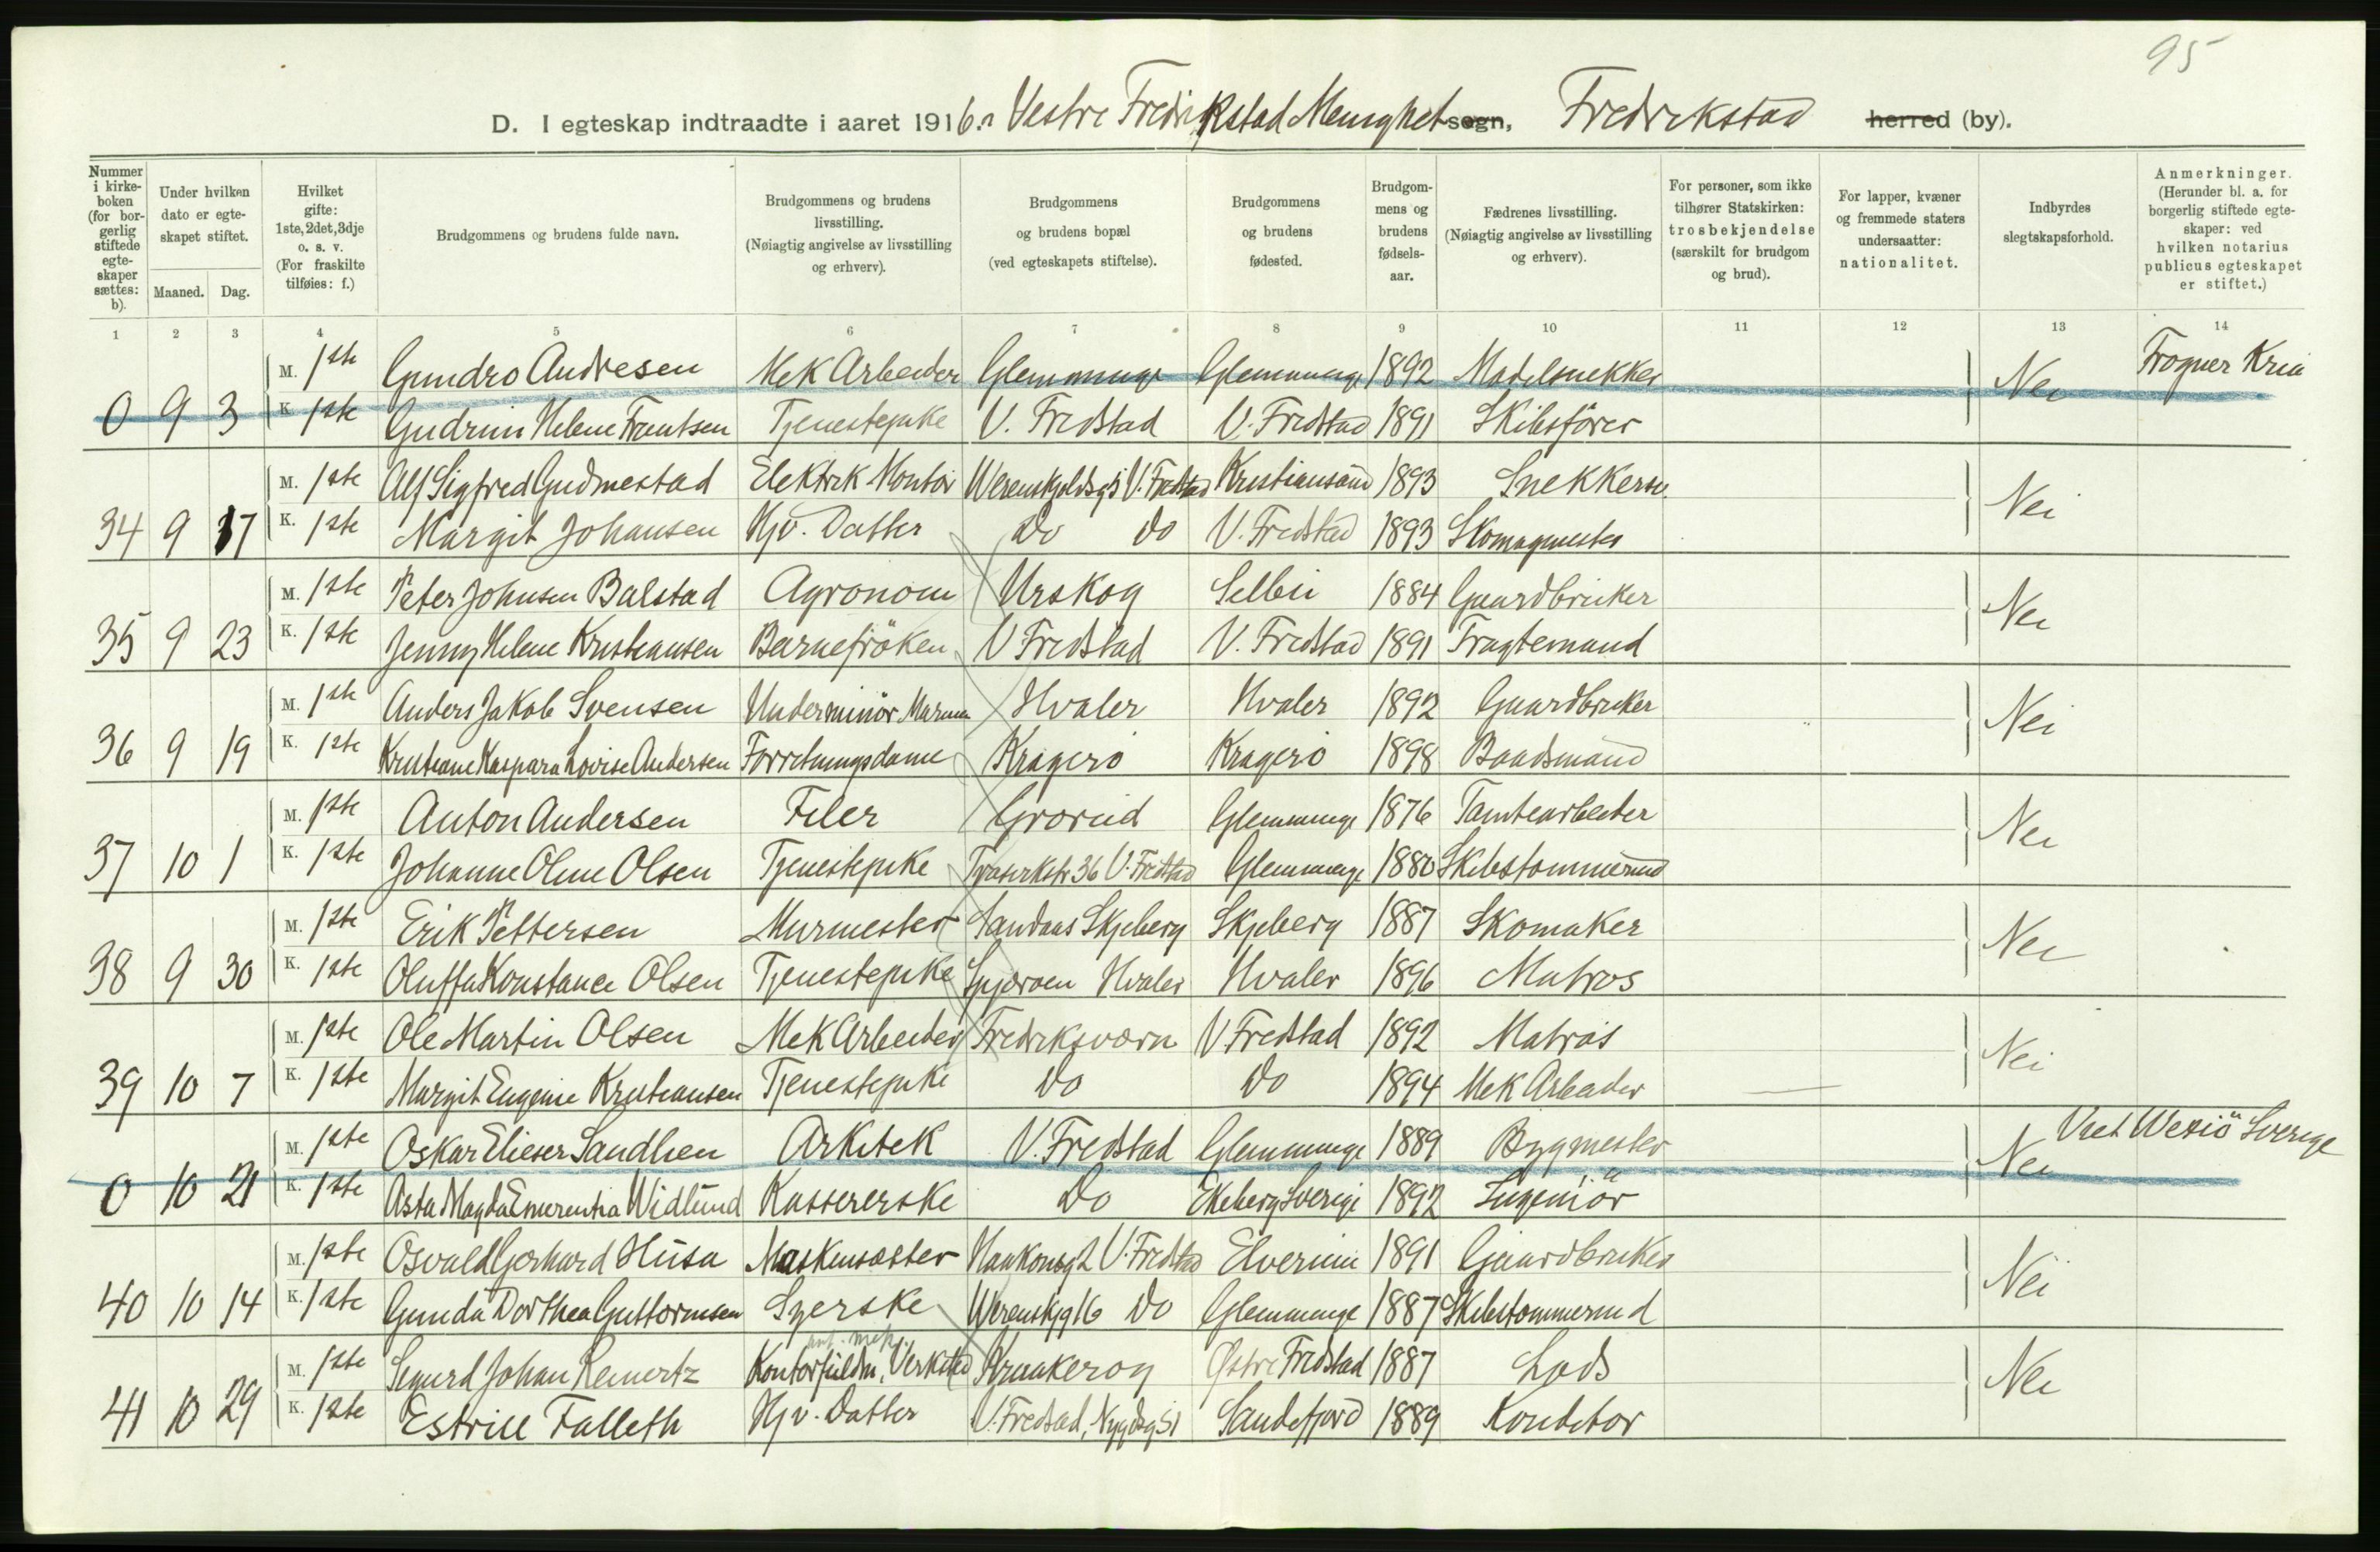 95
D. I egteskap indtraadte i aaret 1916. i Vestre Fredrikstad Menighet sogn, Fredrikstad herred (by).
Nummer i kirkeboken (for borgerlig stiftede egteskaper sættes: b).
Under hvilken dato er egteskapet stiftet.
Maaned. Dag.
Hvilket gifte: 1ste, 2det, 3dje o. s. v. (For fraskilte tilføies: f.)
Brudgommens og brudens fulde navn.
Brudgommens og brudens livsstilling. (Nøiagtig angivelse av livsstilling og erhverv).
Brudgommens og brudens bopæl (ved egteskapets stiftelse).
Brudgommens og brudens fødested.
Brudgommens og brudens fødselsaar.
Fædrenes livsstilling. (Nøiagtig angivelse av livsstilling og erhverv).
For personer, som ikke tilhører Statskirken: trosbekjendelse (særskilt for brudgom og brud).
For lapper, kvæner og fremmede staters undersaatter: nationalitet.
Indbyrdes slegtskapsforhold.
Anmerkninger. (Herunder bl. a. for borgerlig stiftede egteskaper: ved hvilken notarius publicus egteskapet er stiftet.)
1 2 3 4 5 6 7 8 9 10 11 12 13 14
M. 1ste Gundro Andresen Mek Arbeider Glemminge Glemminge 1892 Modelsnekker Nei Frogner Kria
0 9 3 K. 1ste Gudrun Helene Frantsen Tjenestepike V. Fredstad V. Fredstad 1891 Skibsförer
M. 1ste Alf Sigfred Gudmestad Elektrik Montör Werenskjoldsg 5 V. Fredstad Kristiansand 1893 Snekkerm. Nei
34 9 17 K. 1ste Margit Johansen Hjv. Datter Do Do V. Fredstad 1893 Skomagmester
M. 1ste Peter Johnsen Balstad Agronom Urskog Selbu 1884 Gaardbruker Nei
35 9 23 K. 1ste Jenny Helene Kristiansen Barnefröken V Fredstad V. Fredstad 1891 Fragtemand
M. 1ste Anders Jakob Svensen Underminör Marinen Hvaler Hvaler 1892 Gaardbruker Nei
36 9 19 K. 1ste Kristiane Kaspara Lovise Andersen Forretningsdame Kragerö Kragerö 1898 Baadsmand
M. 1ste Anton Andersen Filer Grorud Glemminge 1876 Tomtearbeider Nei
37 10 1 K. 1ste Johanne Oline Olsen Tjenestepike 36 V. Fredstad Glemminge 1880 Skibstømmermd
M. 1ste Erik Pettersen Murmester Sandaas Skjeberg Skjeberg 1887 Skomaker Nei
38 9 30 K. 1ste Oluffa Konstance Olsen Tjenestepike Spjæröen Hvaler Hvaler 1896 Matros
M. 1ste Ole Martin Olsen Mek Arbeider Fredriksværn V Fredstad 1892 Matros Nei
39 10 7 K. 1ste Margit Eugenie Kristiansen Tjenestepike Do Do 1894 Mek Arbeider
M. 1ste Oskar Elieser Sandlien Arkitek V. Fredstad Glemminge 1889 Bygmester Nei Viet Wexiö Sverige
0 10 21 K. 1ste Asta Magda Emerentia Widlund Kassererske Do Ekeberg Sverige 1892 Ingeniör
M. 1ste Osvald Gerhard Husa Maskensæster Haakonsg 2 V. Fredstad Elverum 1891 Gaardbruker Nei
40 10 14 K. 1ste Gunda Dorthea Guttormsen Syerske Werenskjg 16 Do Glemminge 1887 Skibstømmermd
mek.
M. 1ste Sigurd Johan Reinertz Kontorfuldm. Verksted Kraakeröy Østre Fredstad 1887 Lods Nei
41 10 29 K. 1ste Estrill Falleth Hjv. Datter V. Fredstad, Nygdsg 51 Sandefjord 1889 Konditor